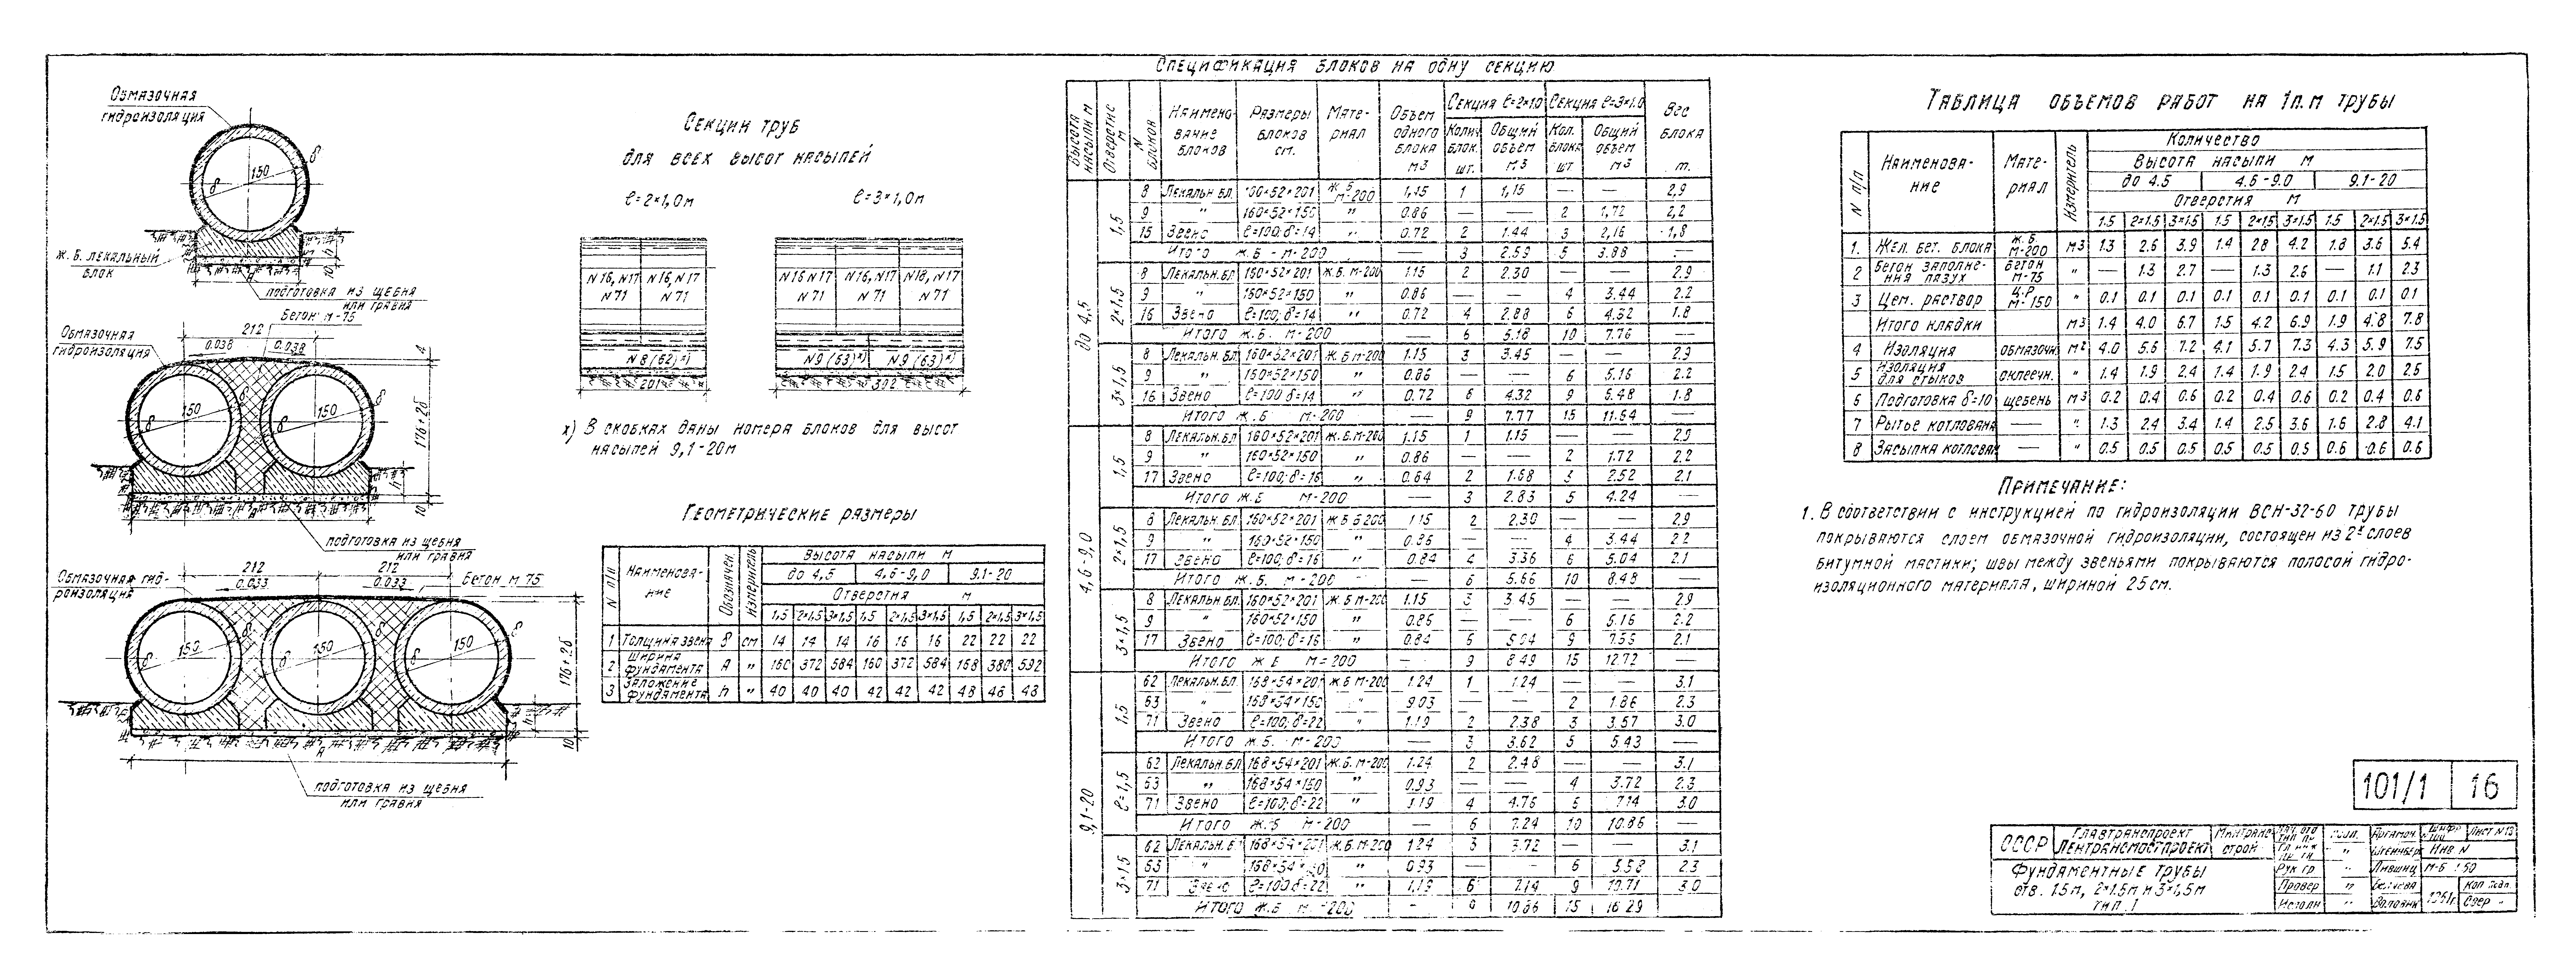 Обмазочная
гидроизоляция
δ
150
δ
Ж.Б. лекальный
блок
h
10
А
подготовка из щебня
или гравия
Бетон М-75
Обмазочная
гидроизоляция
212
0.038 0.038
4
150 150
δ δ δ δ
176+2δ
h
10
А
подготовка из щебня
или гравия
Обмазочная гид-
роизоляция
212 212
0.033 0.033
Бетон М 75
150 150 150
δ δ δ δ
176+2δ
h
10
А
подготовка из щебня
или гравия
Секции труб
для всех высот насыпей
ℓ=2×1,0м ℓ=3×1,0м
N16,N17 N16,N17 N16 N17 N16,N17 N18,N17
N71 N71 N71 N71 N71
N8 (62)х) N9 (63)х) N9 (63)х)
201 302
х) В скобках даны номера блоков для высот
насыпей 9,1-20м
Геометрические размеры
N п/п Наименова-ние Обозначен. Измеритель Высота насыпи м
до 4,5 4,6-9,0 9.1-20
Отверстия м
1,5 2×1,5 3×1,5 1,5 2×1,5 3×1,5 1,5 2×1,5 3×1,5
1 Толщина звена δ см 14 14 14 16 16 16 22 22 22
2 Ширина фундамента А " 160 372 584 160 372 584 168 380 592
3 Заложение фундамента h " 40 40 40 42 42 42 48 48 48
Спецификация блоков на одну секцию
Высота насыпи м Отверстие м N блоков Наимено-вание блоков Размеры блоков см. Мате-риал Объем одного блока м3 Секция ℓ=2×1.0 Секция ℓ=3×1.0 Вес блока т.
Колич. блок. шт. Общий объем м3 Кол. блока шт Общий объем м3
до 4,5
1,5
8 Лекальн.бл. 160×52×201 Ж.Б М-200 1,15 1 1,15 — — 2,9
9 " 160×52×150 " 0.86 — — 2 1,72 2,2
15 Звено ℓ=100; δ=14 " 0.72 2 1.44 3 2,16 1,8
Итого Ж.Б - М-200 3 2.59 5 3.88 —
2×1,5
8 Лекальн.бл 160×52×201 Ж.Б. М-200 1.15 2 2.30 — — 2.9
9 " 160×52×150 " 0.86 — — 4 3.44 2.2
16 Звено ℓ=100; δ=14 " 0.72 4 2.88 6 4.32 1.8
Итого Ж.Б. М-200 — 6 5.18 10 7.76 —
3×1,5
8 Лекальн.бл 160×52×201 Ж.Б М-200 1.15 3 3.45 — — 2.9
9 " 160×52×150 " 0.86 — — 6 5.16 2.2
16 Звено ℓ=100 δ=14 " 0.72 6 4.32 9 5.48 1.8
Итого Ж.Б М-200 — 9 7.77 15 11.64 —
4,6-9,0
1,5
8 Лекальн.бл 160×52×201 Ж.Б М-200 1.15 1 1.15 — — 2.9
9 " 160×52×150 " 0.86 — — 2 1.72 2.2
17 Звено ℓ=100; δ=16 " 0.84 2 1.68 3 2.52 2.1
Итого Ж.Б М-200 — 3 2.83 5 4.24 —
2×1,5
8 Лекальн.бл 160×52×201 1.15 2 2.30 — — 2.9
9 " 160×52×150 " 0.86 — — 4 3.44 2.2
17 Звено ℓ=100; δ=16 " 0.84 4 3.36 6 5.04 2.1
Итого Ж.Б. М-200 — 6 5.66 10 8.48 —
3×1,5
8 Лекальн.бл. 160×52×201 Ж.Б М-200 1.15 3 3.45 — — 2.9
9 " 160×52×150 " 0.86 — — 6 5.16 2.2
17 Звено ℓ=100; δ=16 " 0.84 6 5.04 9 7.56 2.1
Итого Ж.Б М=200 — 9 8.49 15 12.72 —
9,1-20
1,5
62 Лекальн.бл 168×54×201 Ж.Б М-200 1.24 1 1.24 — — 3.1
63 " 168×54×150 " 0.93 — — 2 1.86 2.3
71 Звено ℓ=100; δ=22 " 1.19 2 2.38 3 3.57 3.0
Итого Ж.Б. М-200 — 3 3.62 5 5.43 —
62 Лекальн.бл 168×54×201 Ж.Б. М-200 1.24 2 2.48 — — 3.1
63 " 168×54×150 " 0.93 — — 4 3.72 2.3
71 Звено ℓ=100; δ=22 " 1.19 4 4.76 6 7.14 3.0
Итого Ж.Б М-200 — 6 7.24 10 10.86 —
3×1.5
62 Лекальн.б 168×54×201 Ж.Б М-200 1.24 3 3.72 — — 3.1
63 " 168×54×150 " 0.93 — — 6 5.58 2.3
71 Звено ℓ=100 δ=22 " 1.19 6 7.14 9 10.71 3.0
Итого Ж.Б М-200 - 9 10.86 15 16.29
Таблица объемов работ на 1п.м трубы
N п/п Наименова-ние Мате-риал Измеритель Количество
Высота насыпи м
до 4.5 4.6-9.0 9.1-20
Отверстия м
1.5 2×1.5 3×1.5 1.5 2×1.5 3×1.5 1.5 2×1.5 3×1.5
1. Жел. бет. блока Ж.Б М-200 м3 1.3 2.6 3.9 1.4 2.8 4.2 1.8 3.6 5.4
2 Бетон заполне-ния пазух Бетон М-75 " — 1.3 2.7 — 1.3 2.6 — 1.1 2.3
3 Цем. раствор Ц.Р М-150 " 0.1 0.1 0.1 0.1 0.1 0.1 0.1 0.1 0.1
Итого кладки м3 1.4 4.0 6.7 1.5 4.2 6.9 1.9 4.8 7.8
4 Изоляция обмазочн м² 4.0 5.6 7.2 4.1 5.7 7.3 4.3 5.9 7.5
5 Изоляция для стыков оклеечн. " 1.4 1.9 2.4 1.4 1.9 2.4 1.5 2.0 2.5
6 Подготовка δ=10 щебень м3 0.2 0.4 0.6 0.2 0.4 0.6 0.2 0.4 0.6
7 Рытье котлована — " 1.3 2.4 3.4 1.4 2.5 3.6 1.6 2.8 4.1
8 Засыпка котлован — " 0.5 0.5 0.5 0.5 0.5 0.5 0.6 0.6 0.6
Примечание:
1. В соответствии с инструкцией по гидроизоляции ВСН-32-60 трубы
покрываются слоем обмазочной гидроизоляции, состоящей из 2х слоев
битумной мастики; швы между звеньями покрываются полосой гидро-
изоляционного материала, шириной 25 см.
101/1 16
СССР Главтранспроект
Лентрансмостпроект
Фундаментные трубы
отв. 1.5м, 2×1.5м и 3×1,5м
тип 1
Рук гр Лившиц М-Б 1:50
Провер "
Исполн " 1961г.
Инв N
Лист N13